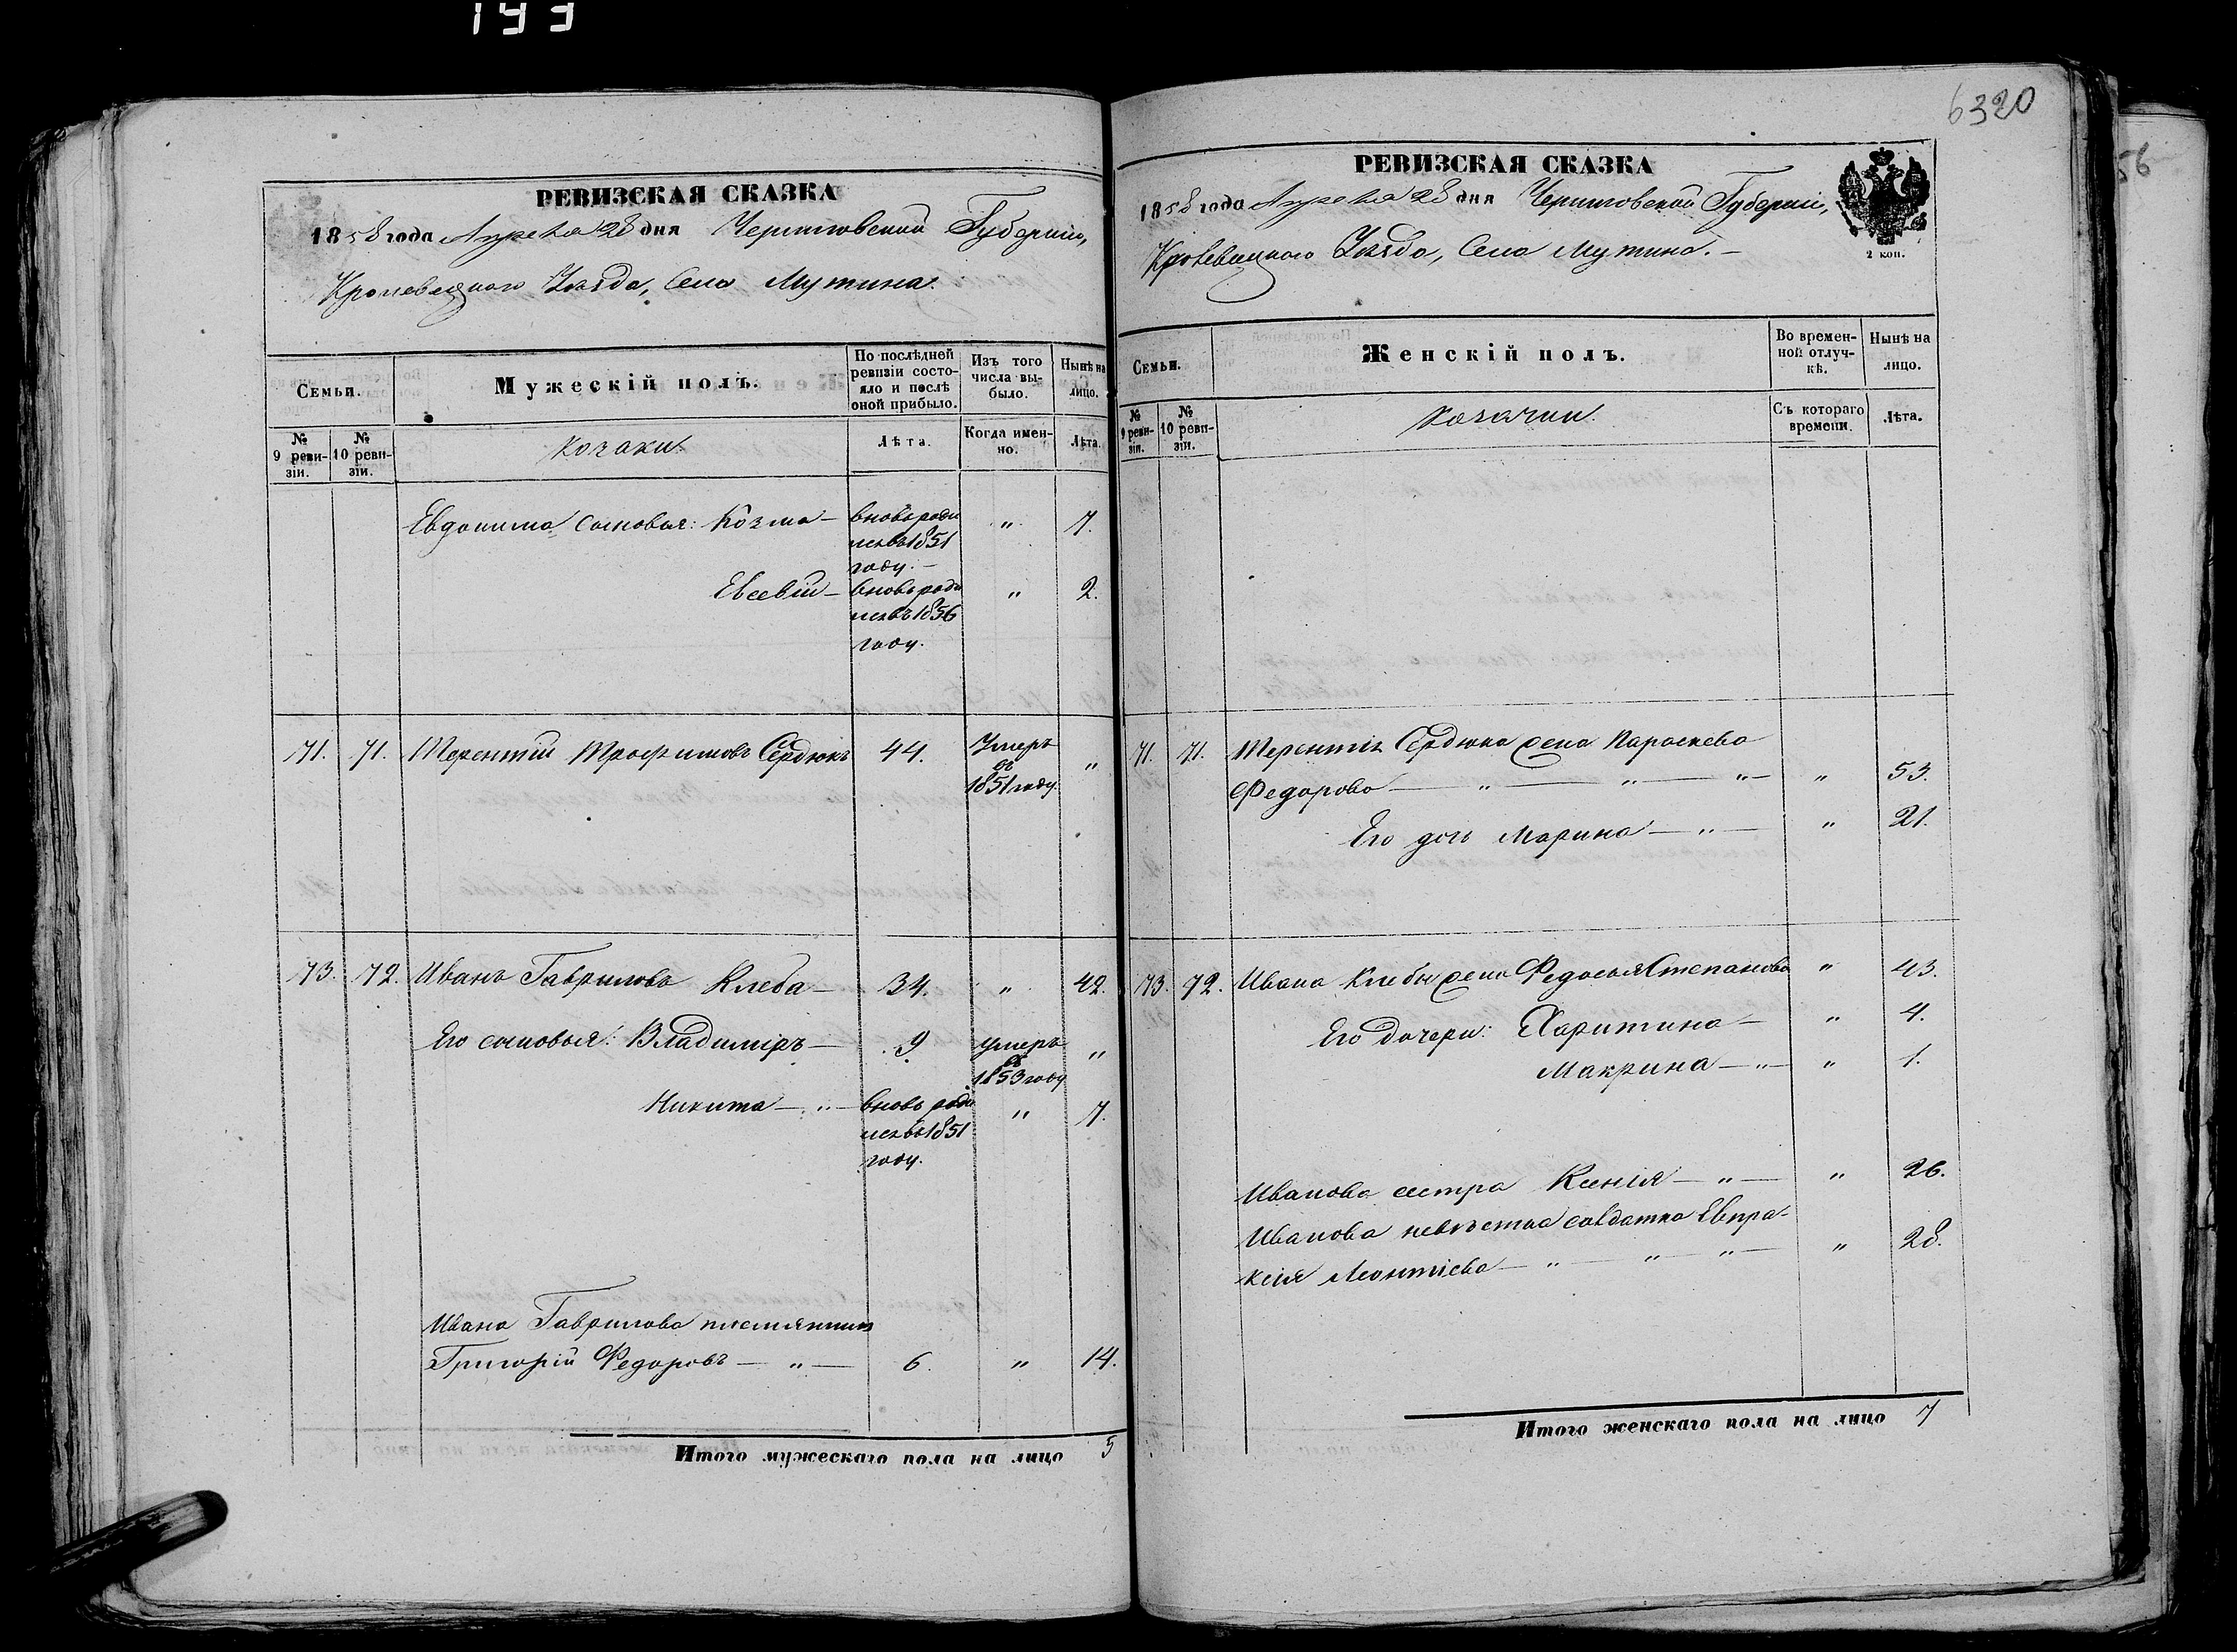 193
6320
56
РЕВИЗСКАЯ СКАЗКА
1858 года Апреля 28 дня Черниговской Губернiи,
Кролевецкого Уѣзда, Села Мутина.
Семьи.
Мужескiй полъ.
По послѣдней ревизiи состояло и послѣ оной прибыло.
Изъ того числа выбыло.
Нынѣ на лицо.
№ 9 ревизiи.
№ 10 ревизiи.
Козаки.
Лѣта.
Когда именно.
Лѣта.
Евдокима сыновья: Козма — вновь роди „ 7.
лсявъ 1851
году. —
Евсевiй — вновь роди „ 2.
лсявъ 1856
году.
71. 71. Терентiй Трофимовъ Сердюкъ 44. Умеръ „
въ
1851 году
73. 72. Иванъ Гавриловъ Клеба — 34. „ 42.
Его сыновья: Владимiръ — 9 умеръ „
въ
1853 году
Никита — „ — вновь роди „ 7.
лсявъ 1851
году.
Ивана Гаврилова племянникъ
Григорiй Федоровъ — „ — 6. „ 14.
Итого мужескаго пола на лицо 5
РЕВИЗСКАЯ СКАЗКА
1858 года Апреля 28 дня Черниговской Губернiи,
Кролевецкого Уѣзда, Села Мутина. —
2 коп.
Семьи.
Женскiй полъ.
Во временной отлучкѣ.
Нынѣ на лицо.
№ 9 ревизiи.
№ 10 ревизiи.
Козачки.
Съ котораго времени.
Лѣта.
71. 71. Терентiя Сердюка жена Параскева
Федорова — „ — „ — „ 53.
Его дочь Марина — „ — „ 21.
73. 72. Ивана Клебы жена Федосья Степанова „ 43.
Его дочери: Харитина — „ 4.
Макрина — „ — „ 1.
Иванова сестра Ксенiя — „ — „ 26.
Иванова невѣстка солдатка Евпра-
ксiя Леонтiева — „ — „ — „ — „ 28.
Итого женскаго пола на лицо 7